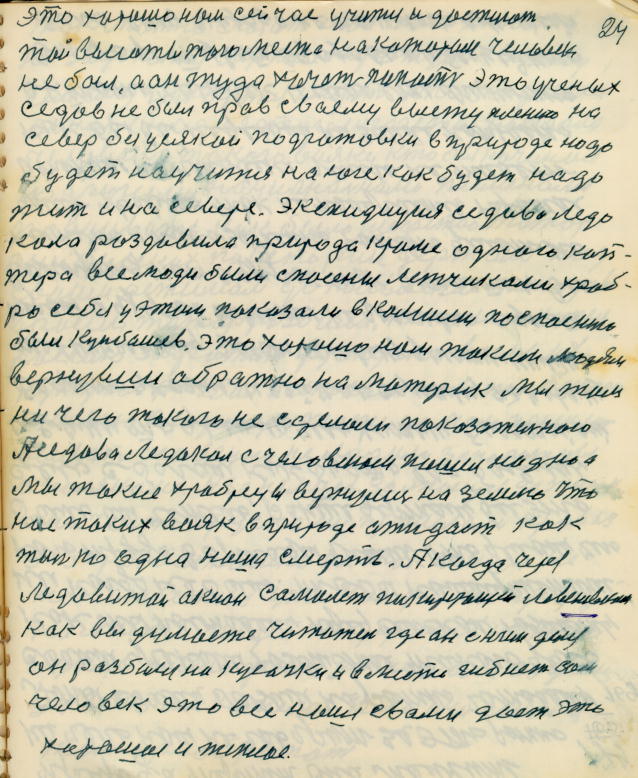 это хорошо нам сейчас учити и достигат
24
тои высоты того места на катором человек
не был, а он туда хочет попасть это ученых
седов не был прав своему выступлению на
север без усякой подготовки в природе надо
будет научится на юге как будет надо
жит и на севере. Экспидиция седова ледо
кола роздавила природа кроме одного кап-
тера все люди были спасены летчиками храб-
ро себя у этом показали в комисии по спасению
был Куйбашев. это хорошо нам таким людям
вернувши обратно на материк мы там
ни чего такого не сделали показателного
А седова ледокол с человеком пошли на дно а
мы такие храбрецы вернулис на землю что
нас таких вояк в природе ожидает как
тол ко одна наша смерть. А когда через
ледовитой акиан самолет
как вы думаете читатели где он с ним делся
он разбился на кусочки и вмести гибнет сам
человек это все наши с вами дает это
хорошое и теплое.